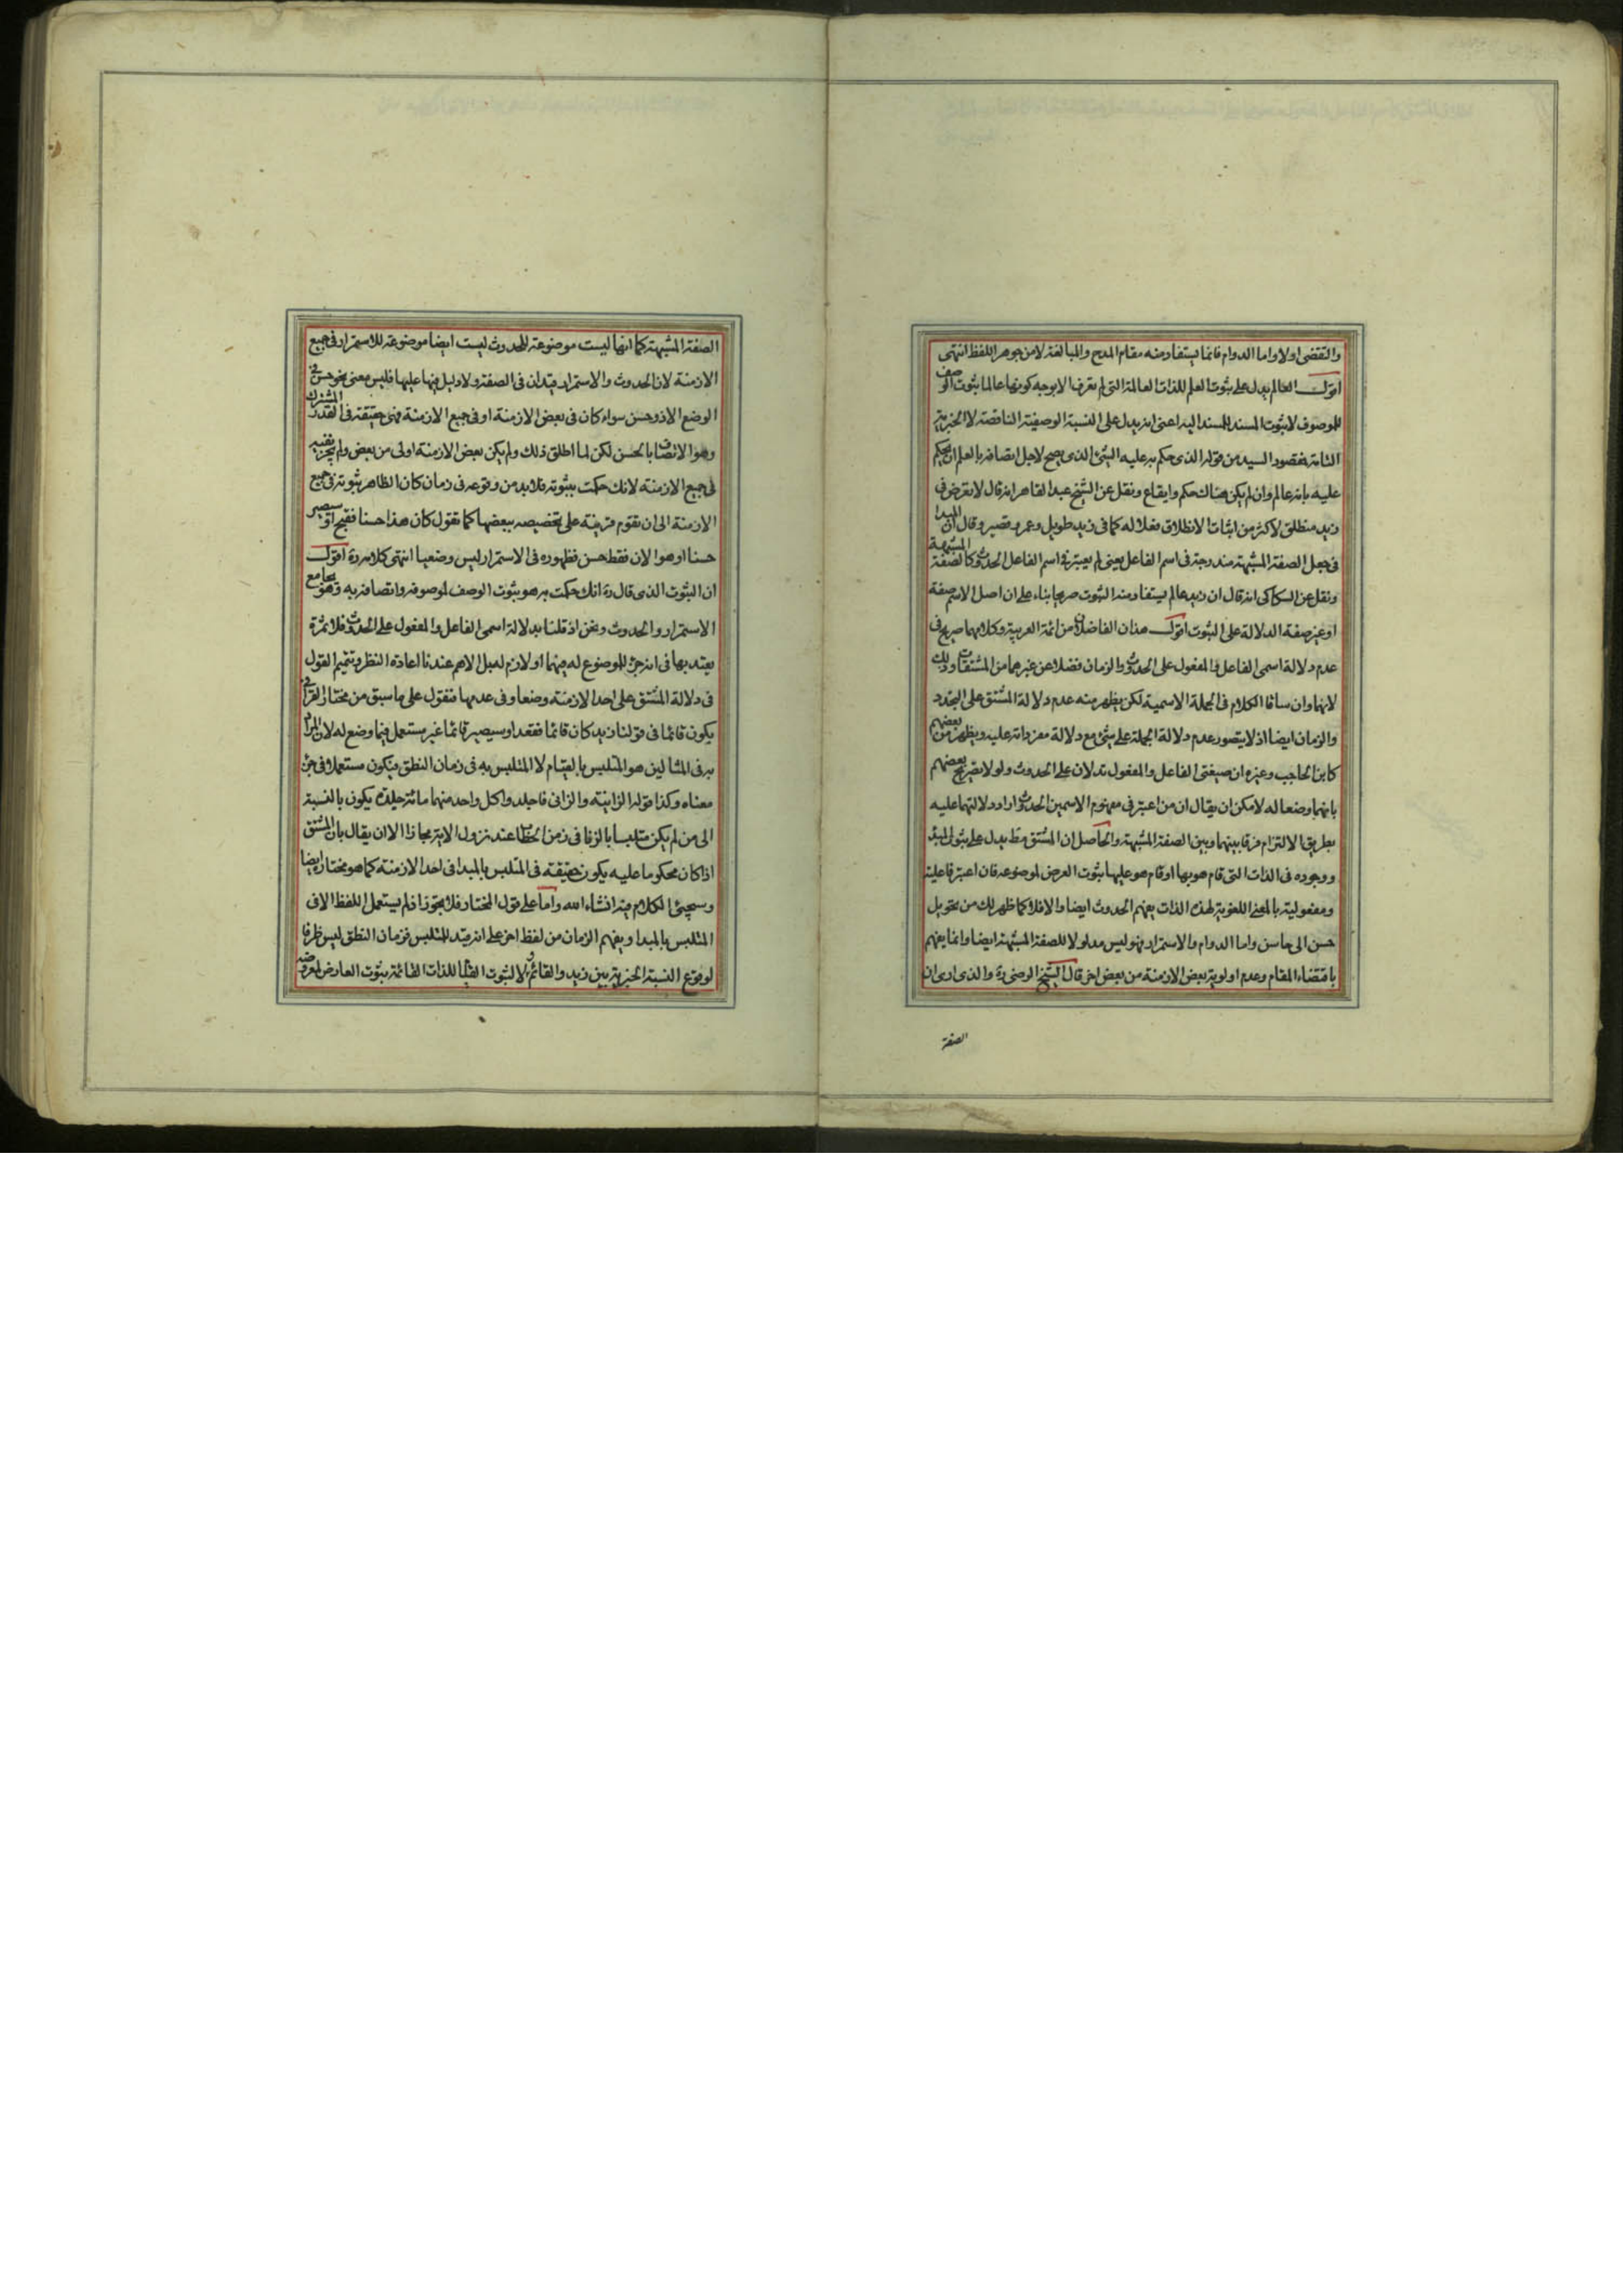 والتقضى اولا واما الدوام فانما يستفاد منه مقام المدح والمبالغة لا من جوهر اللفظ انتهى
اقول العالم يدل على ثبوت العلم للذات العالمة التى لم تعرف الا بوجه كونها عالما ثبوت الوصف
للموصوف لا ثبوت المسند للمسند اليه اعنى انه يدل على النسبة الوصفية الناقصة لا الخبرية
التامة فمقصود السيد من قوله الذى حكم به عليه الشئ الذى يصح لاجل اتصافه بالعلم ان يحكم
عليه بانه عالم وان لم يكن هناك حكم وايقاع ونقل عن الشيخ عبد القاهر انه قال لا تعرض فى
زيد منطلق لاكثر من اثبات الانطلاق فعلا له كما فى زيد طويل وعمرو قصير وقال ان المبدا
فى جعل الصفة المشبهة مندرجة فى اسم الفاعل يعنى لم يعتبر فى اسم الفاعل الحدوث كالصفة المشبهة
ونقل عن السكاكى انه قال ان زيد عالم يستفاد منه الثبوت صريحا بناء على ان اصل الاسم صفة
او غير صفة الدلالة على الثبوت اقول هذان الفاضلان من ائمة العربية وكلامهما صريح فى
عدم دلالة اسمى الفاعل والمفعول على الحدوث والزمان فضلا عن غيرهما من المشتقات وذلك
لانهما وان ساقا الكلام فى الجملة الاسمية لكن يظهر منه عدم دلالة المشتق على التجدد
والزمان ايضا اذ لا يتصور عدم دلالة الجملة على شئ مع دلالة مفرداته عليه ويظهر من بعضهم
كابن الحاجب وغيره ان صيغتى الفاعل والمفعول تدلان على الحدوث ولو لا تصريح بعضهم
بانهما وضعا له لامكن ان يقال ان من اعتبر فى مفهوم الاسمين الحدوث اراد دلالتهما عليه
بطريق الالتزام فرقا بينهما وبين الصفة المشبهة والحاصل ان المشتق مط يدل على ثبوت المبدا
ووجوده فى الذات التى قام هو بها او قام هو عليها ثبوت العرض لموضوعه فان اعتبر فاعليته
ومفعوليته بالمعنى اللغوية لهذه الذات يفهم الحدوث ايضا والا فلا كما ظهر لك من تحويل
حسن الى حاسن واما الدوام والاستمرار فهو ليس مدلولا للصفة المشبهة ايضا وانما يفهم
باقتضاء المقام وعدم اولوية بعض الازمنة من بعض اخر قال الشيخ الرضى ره والذى ارى ان
الصفة
الصفة المشبهة كما انها ليست موضوعة للحدوث ليست ايضا موضوعة للاستمرار فى جميع
الازمنة لان الحدوث والاستمرار قيدان فى الصفة ولا دليل فيها عليها فليس معنى نحو حسن فى
الوضع الا ذو حسن سواء كان فى بعض الازمنة او فى جميع الازمنة فهى حقيقة فى القدر المشترك
وهو الاتصاف بالحسن لكن لما اطلق ذلك ولم يكن بعض الازمنة اولى من بعض ولم يجز نفيه
فى جميع الازمنة لانك حكمت بثبوته فلا بد من وقوعه فى زمان كان الظاهر ثبوته فى جميع
الازمنة الى ان تقوم قرينة على تخصيصه ببعضها كما تقول كان هذا حسنا فقبح او سيصير
حسنا او هو الان فقط حسن فظهوره فى الاستمرار ليس وضعيا انتهى كلامه ره اقول
ان الثبوت الذى قال ره انك حكمت به هو ثبوت الوصف لموصوفه واتصافه به وهو يجامع
الاستمرار والحدوث ونحن اذ قلنا بدلالة اسمى الفاعل والمفعول على الحدوث فلا ثمرة
يعتد بها فى انه جزء للموضوع له فيهما او لازم له بل الاهم عندنا اعادة النظر وتتميم القول
فى دلالة المشتق على احد الازمنة وضعا وفى عدمها فنقول على ما سبق من مختار القرافى
يكون قائما فى قولنا زيد كان قائما فقعد او سيصير قائما غير مستعمل فيما وضع له لان المراد
به فى المثالين هو المتلبس بالقيام لا المتلبس به فى زمان النطق فيكون مستعملا فى جزء
معناه وكذا قوله الزانية والزانى فاجلدوا كل واحد منهما مائة جلدة يكون بالنسبة
الى من لم يكن متلبسا بالزنا فى زمن الخطاب عند نزول الاية مجازا الا ان يقال بان المشتق
اذا كان محكوما عليه يكون حقيقة فى المتلبس بالمبدا فى احد الازمنة كما هو مختاره ايضا
وسيجئ الكلام فيه انشاء الله واما على قول المختار فلا تجوز اذ لم يستعمل اللفظ الا فى
المتلبس بالمبدا ويفهم الزمان من لفظ اخر على انه قيد للتلبس فزمان النطق ليس ظرفا
لوقوع النسبة الخبرية بين زيد والقائم ولا لثبوت القيام للذات القائمة ثبوت العارض لمعروضه